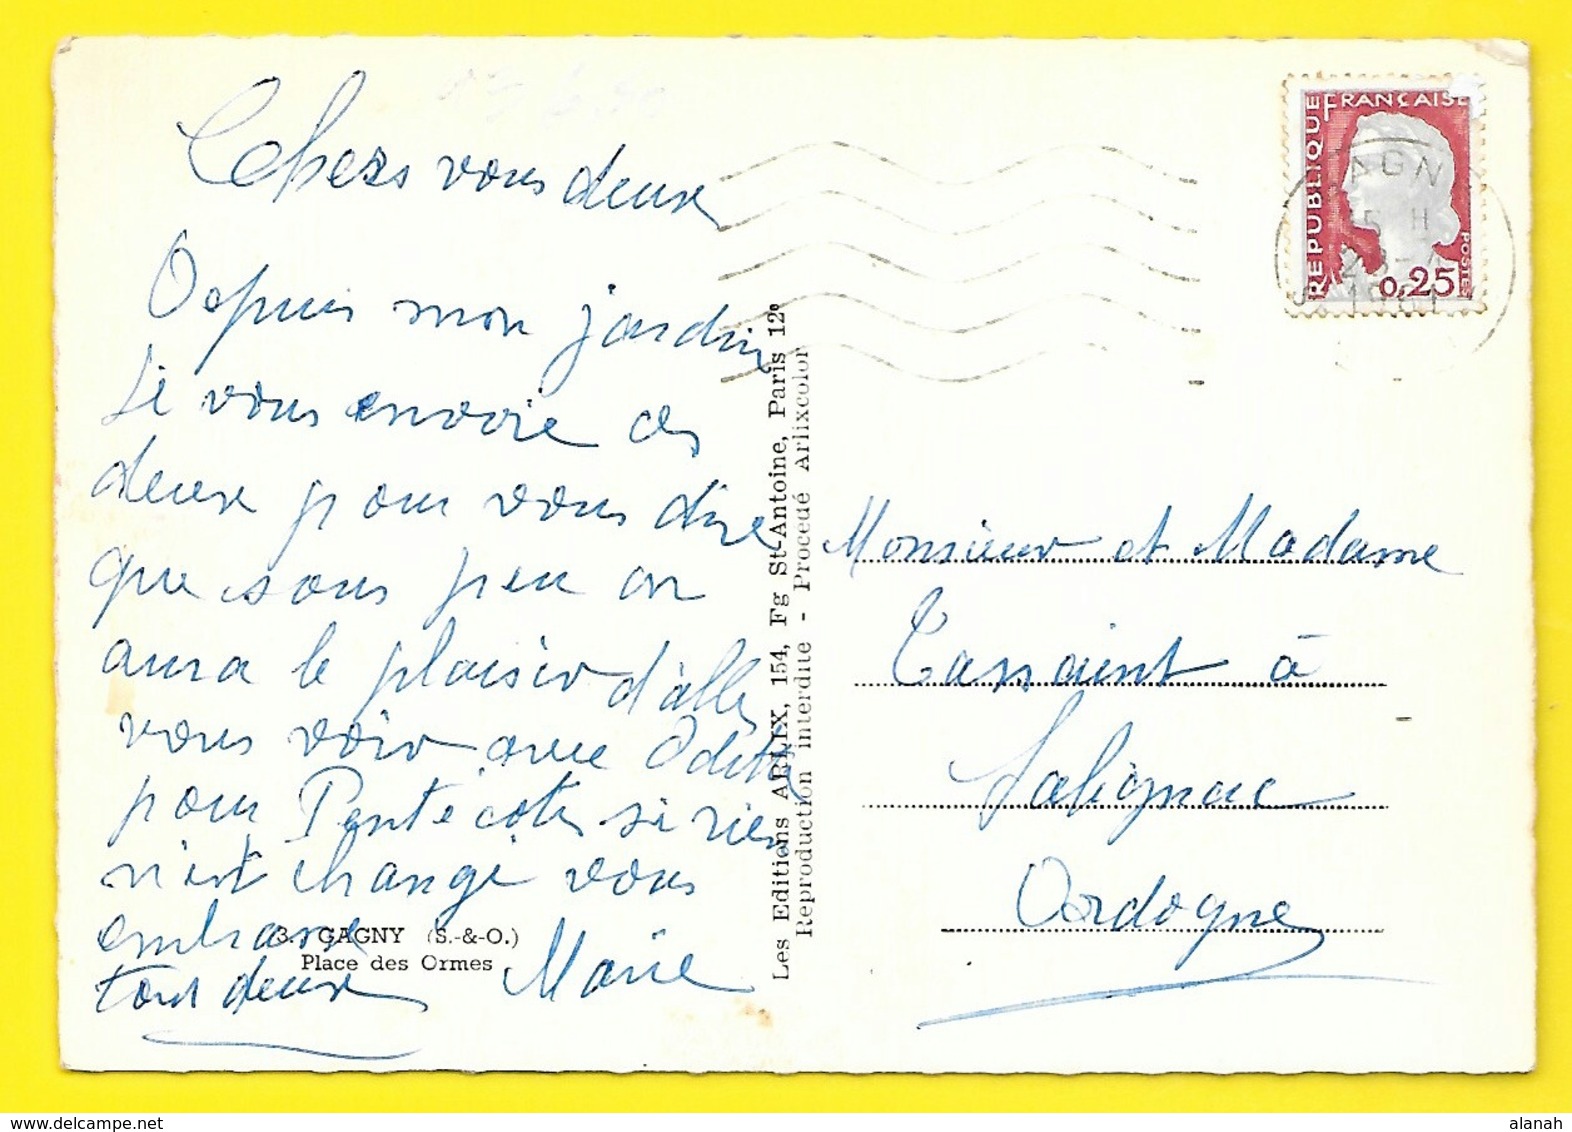 Chers vous deux
Depuis mon jardin
Je vous envoie ces
deux pour vous dire
que sous peu on
aura le plaisir d'aller
vous voir avec Odette
pour Pentecôte si rien
n'est changé vous
embrasse
tous deux Marie
3. - GAGNY (S.-&-O.)
Place des Ormes
Les Editions ARLIX, 154, Fg St-Antoine, Paris 12e
Reproduction interdite - Procédé Arlixcolor
REPUBLIQUE FRANÇAISE
POSTES
0,25
AGN
Monsieur et Madame
Tassaint à
Salignac
Dordogne
alanah